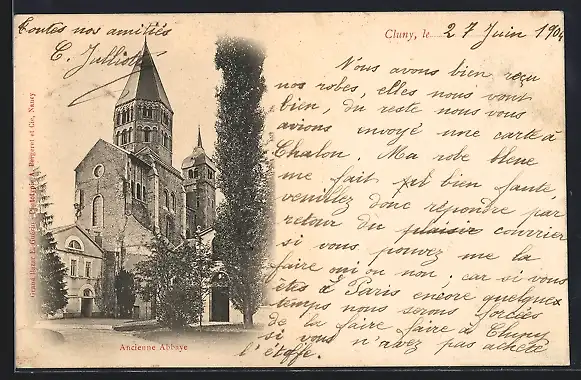 Toutes nos amitiés
C. Julliot
Cluny, le 27 Juin 1904
Nous avons bien reçu
nos robes, elles nous vont
bien, du reste nous vous
avions envoyé une carte à
Chalon. Ma robe bleue
me fait bien faute,
veuillez donc répondre par
retour du plaisir courrier
si vous pouvez me la
faire oui ou non, car si vous
êtes à Paris encore quelques
temps nous serons forcées
de la faire faire à Cluny
si vous n'avez pas acheté
l'étoffe.
Grand Bazar
A. Bergeret et Cie, Nancy
Ancienne Abbaye